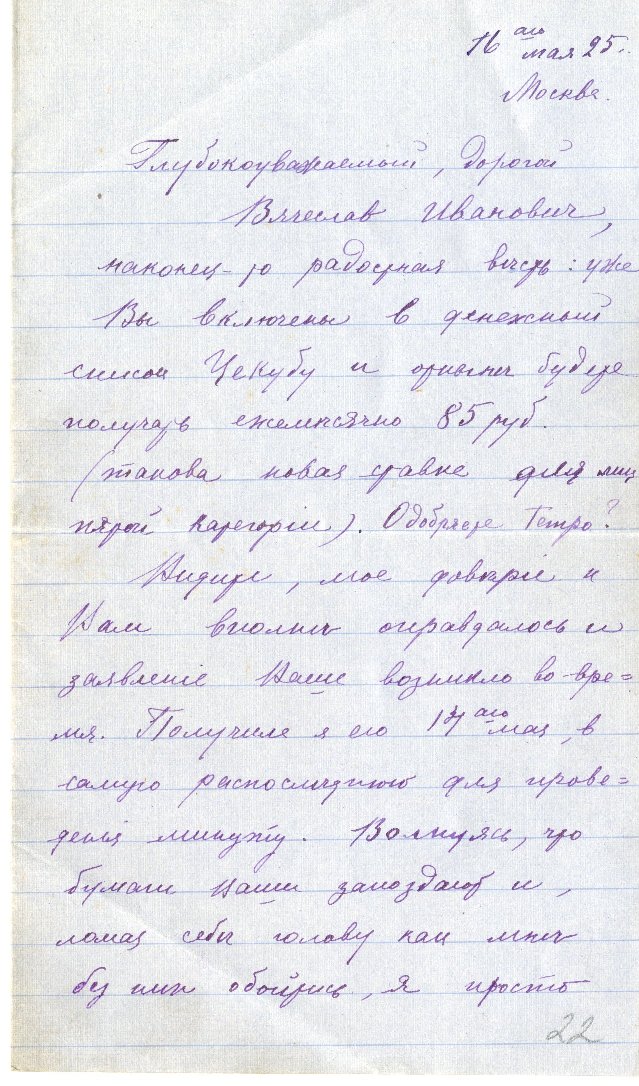 16ого мая 25.
Москва.
Глубокоуважаемый, дорогой
Вячеслав Иванович,
наконец-то радостная весть: уже
Вы включены в денежный
список Цекубу и отныне будете
получать ежемѣсячно 85 руб.
(такова новая ставка для лиц
пятой категоріи). Одобряете Гетро?
Видите, мое доверіе к
Вам вполнѣ оправдалось и
заявленіе Ваше возникло во-вре=
мя. Получила я его 14ого мая, в
самую распослѣднюю для прове=
денія минуту. Волнуясь, что
бумаги Ваши запоздают и,
ломая себѣ голову как мнѣ
без них обойтись, я просто
22